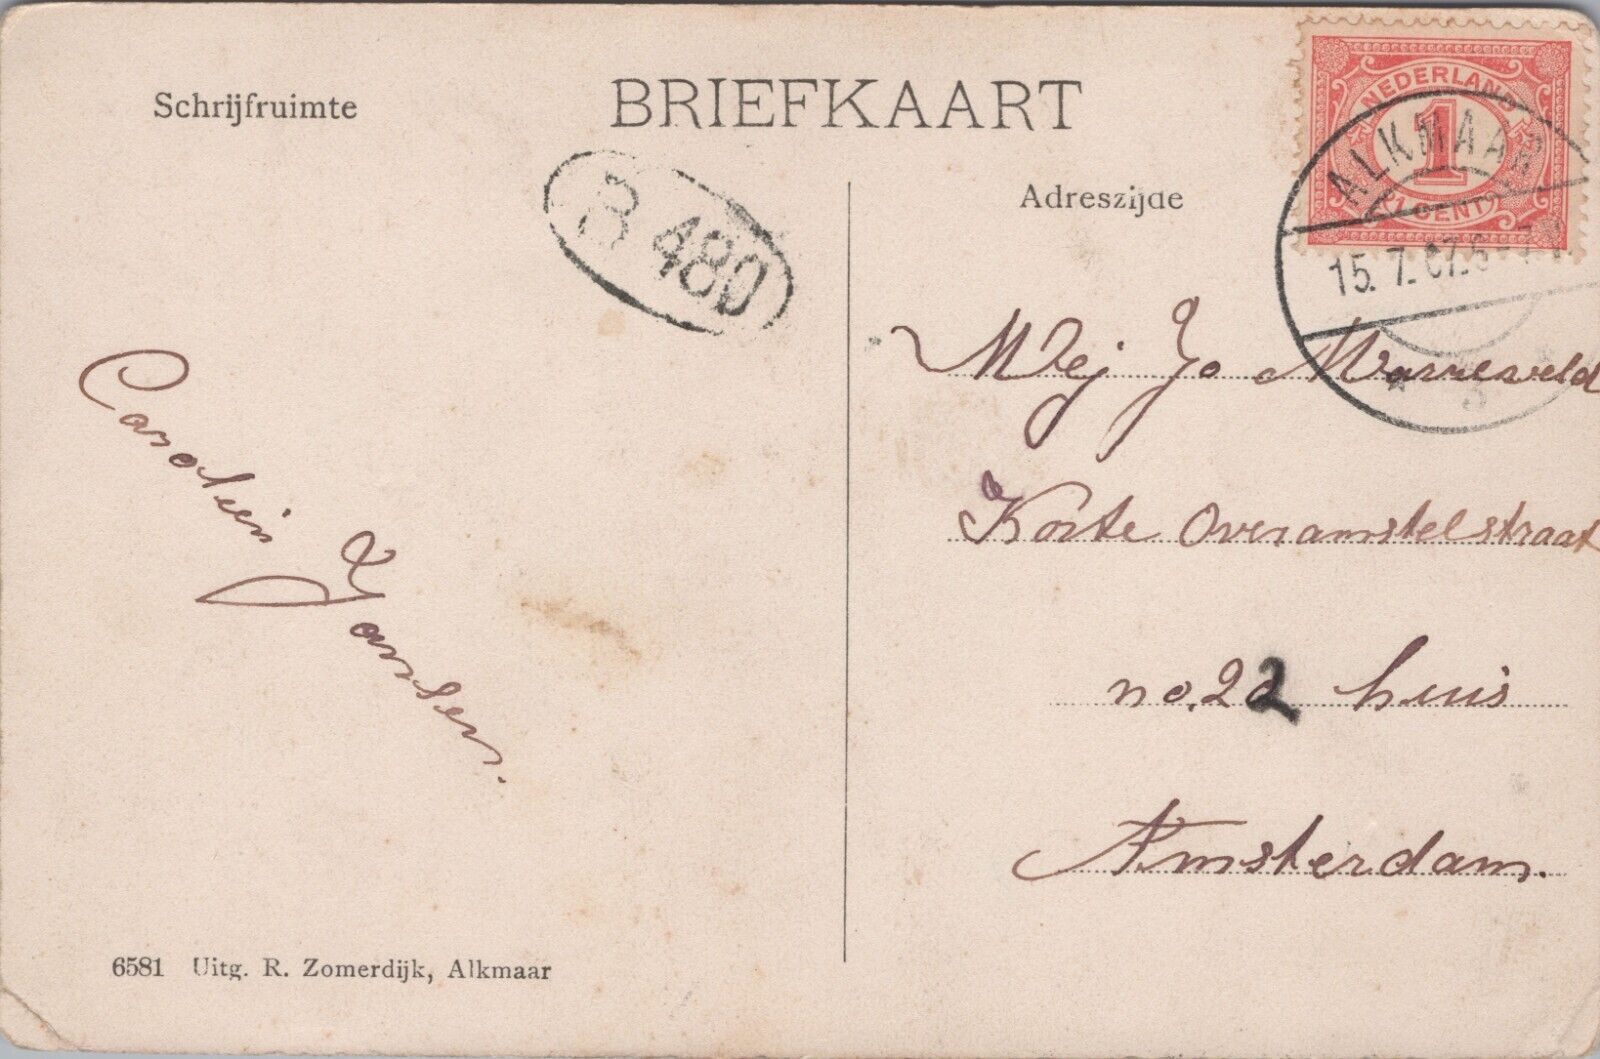 Schrijfruimte
BRIEFKAART
Adreszijde
NEDERLAND
1
1 CENT
ALKMAAR
15. 7. 07. 6-7 N
3
B 480
Mej Jo Marreveld
Korte Overamstelstraat
no. 22 huis
Amsterdam.
Carolein Jansen.
6581 Uitg. R. Zomerdijk, Alkmaar